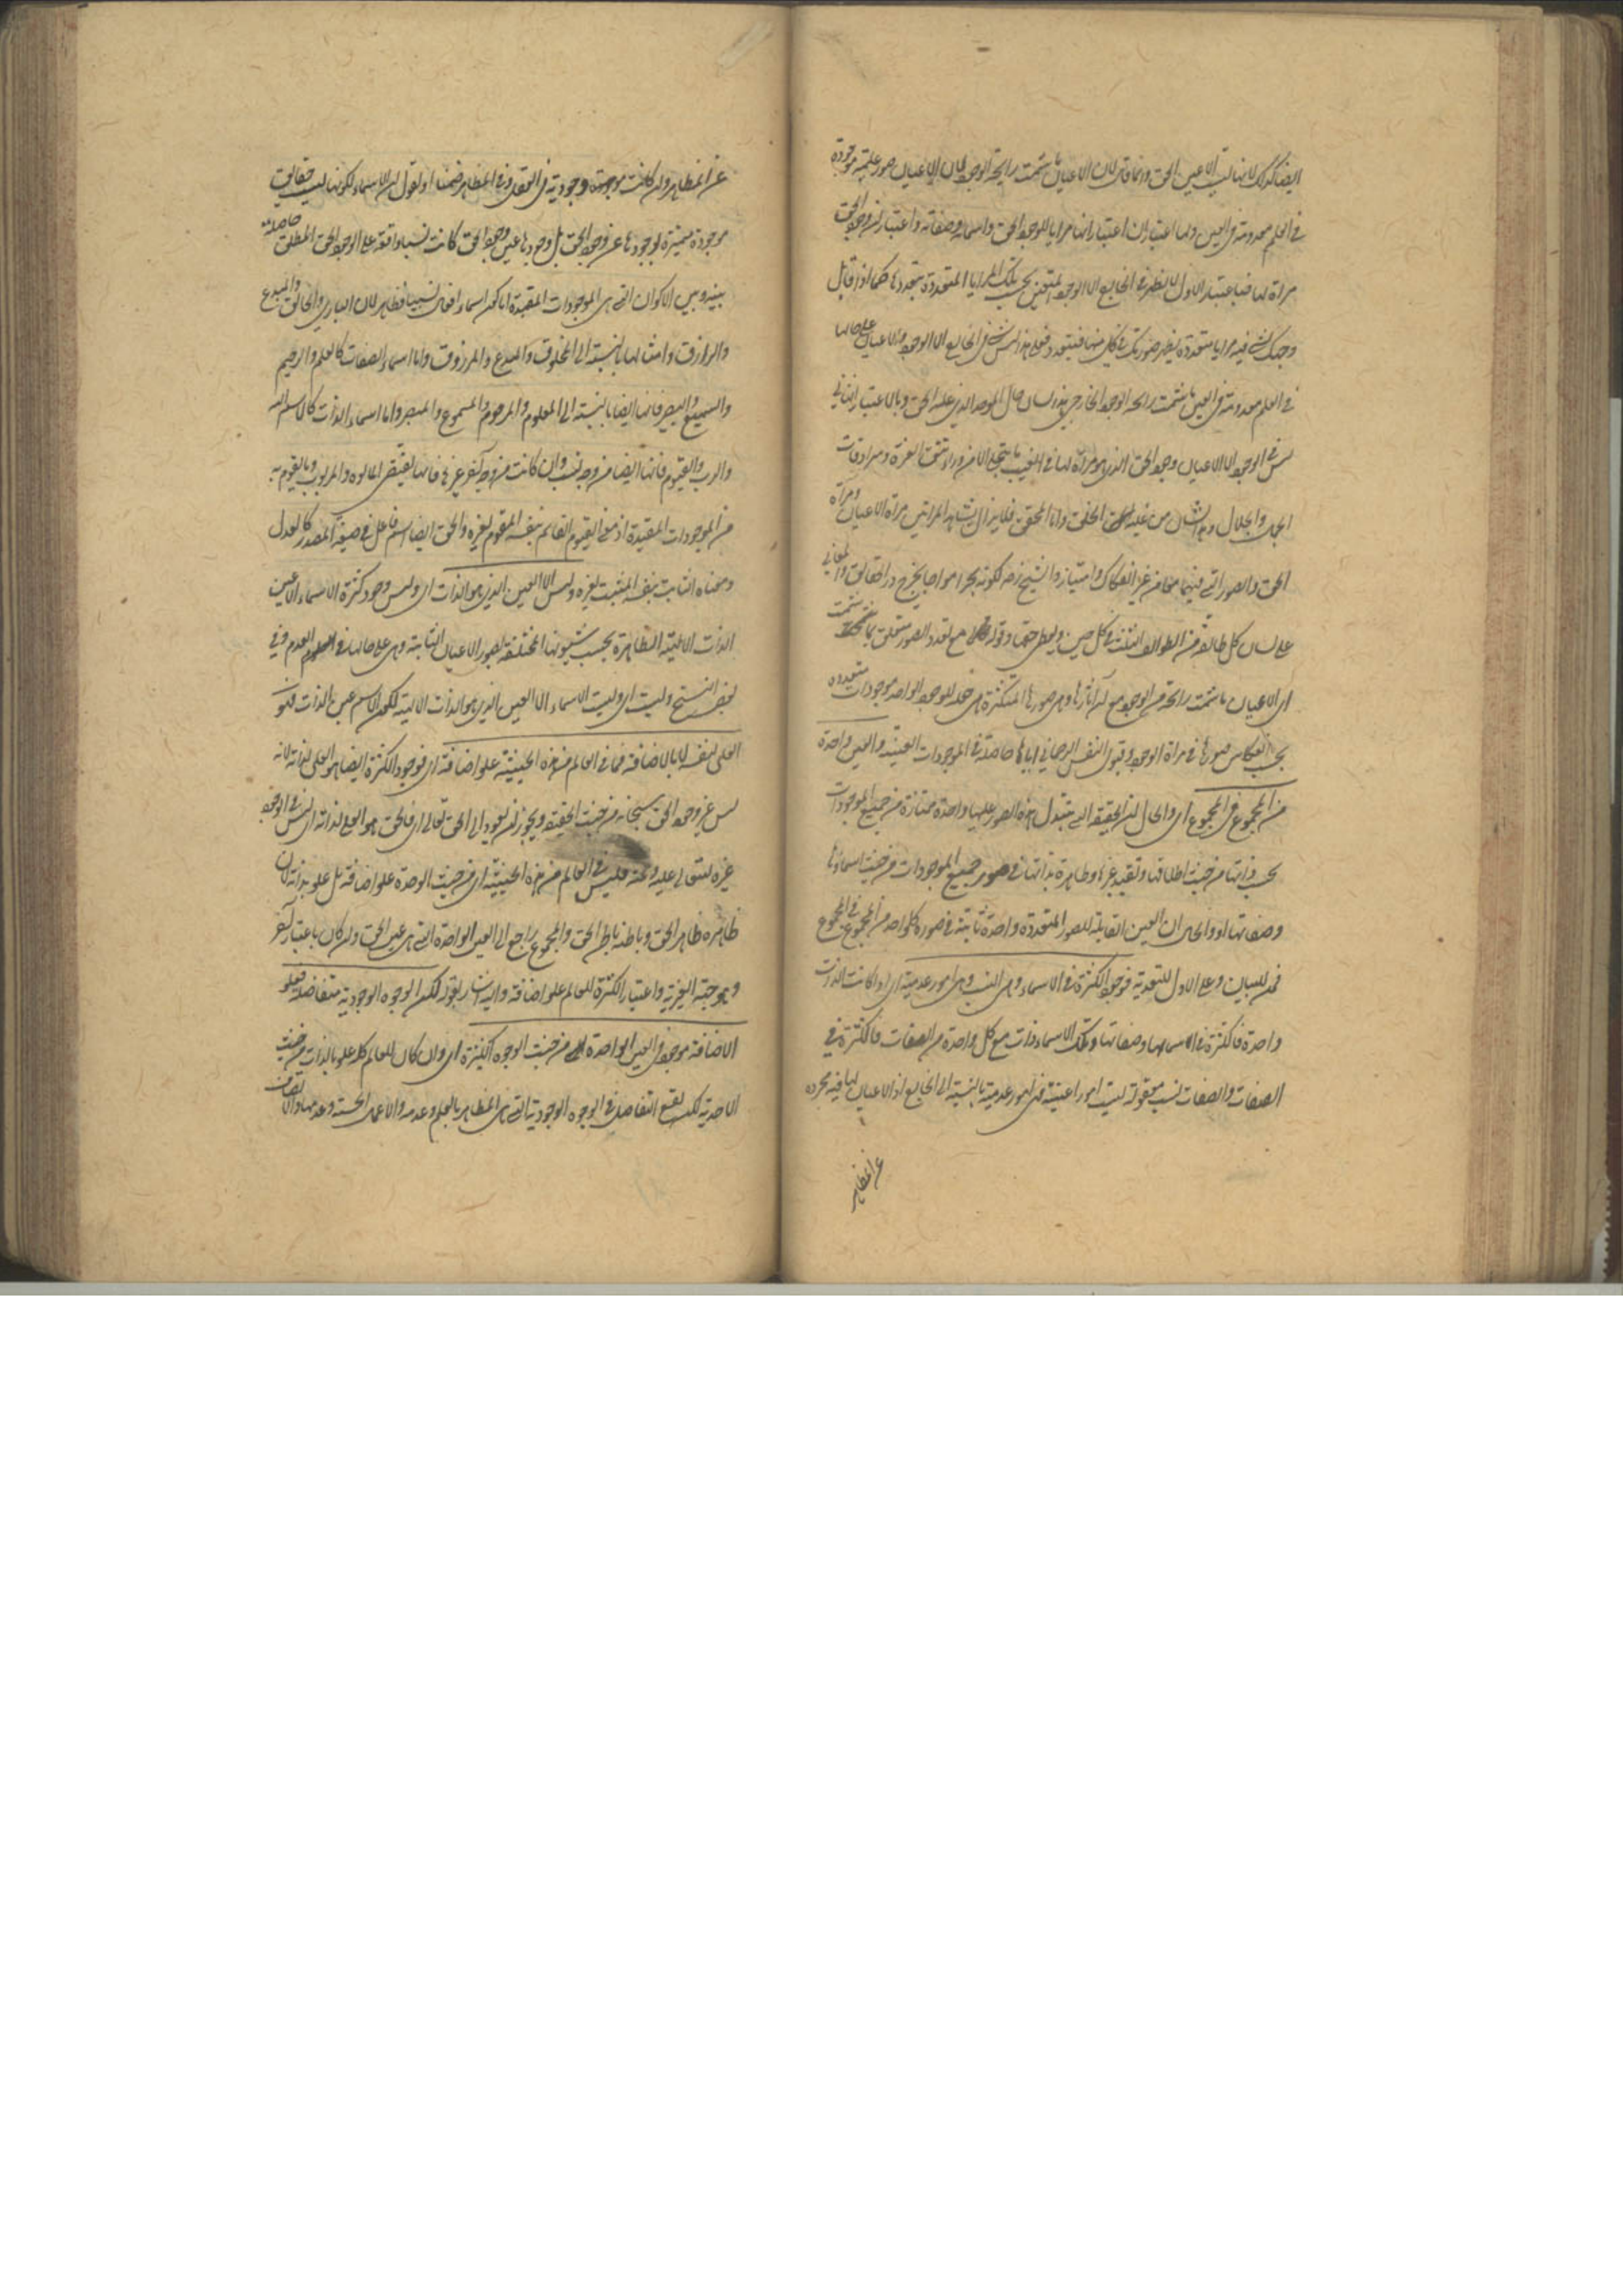 ايضا كذلك لانها ليست الا عين الحق وانما قال لان الاعيان ما شمت رايحة الوجود لان الاعيان صور علمية موجودة
فى العلم معدومة فى العين ولها اعتباران اعتبار انها مرايا لوجود الحق واسمائه وصفاته واعتبار ان وجود الحق
مرآة لها فباعتبار الاول لا يظهر فى الخارج الا الوجود المتعين بحسب تلك المرايا المتعددة بتعددها كما اذا قابل
وجهك شىء فيه مرايا متعددة يظهر صورتك فى كل منها فيتعدد فعلى هذا ليس فى الخارج الا الوجود والاعيان على حالها
فى العلم معدومة فى العين ما شمت رايحة الوجود الخارجى هذا لسان حال الموحد الذى غلبه الحق وبالاعتبار الثانى
ليس فى الوجود الا الاعيان ووجود الحق الذى هو مرآة لها فى الغيب ما يتجلى الا من وراء تتق العزة وسرادقات
الجمال والجلال وهذا لسان من غلبه الخلق واما المحقق فلا يزال يشاهد المراتين مرآة الاعيان ومرآة
الحق والصور التى فيهما معا من غير انفكاك وامتياز والشيخ رضه لكونه بحرا مواجا يخرج درر الحقايق والمعانى
على لسان كل طائفة من الطوائف الثلث فى كل حين ويعطى حقها وقوله مع تعدد الصور متعلق بما شمت
اى الاعيان ما شمت رايحة من الوجود مع ان آثارها وهى صورها المتكثرة هى جعل الوجود الواحد موجودات متعددة
بحسب انعكاس صورها فى مرآة الوجود وقبول النفس الرحمانى اياها حاصلة فى الموجودات العينية والعين واحدة
من المجموع فى المجموع اى والحال ان الحقيقة التى تتبدل هذه الصور عليها واحدة ممتازة من جميع الموجودات
بحسب ذاتها من حيث اطلاقها وتقيد غيرها وظاهرة بذاتها فى صور جميع الموجودات من حيث اسمائها
وصفاتها او والحال ان العين القابلة للصور المتعددة واحدة ثابتة فى صورة كل واحد من المجموع فى المجموع
فمن للبيان وعلى الاول للتعدية فوجود الكثرة فى الاسماء وهى النسب وهى امور عدمية اى اذا كانت الذات
واحدة فالكثرة فى اسمائها وصفاتها وتلك الاسماء ذات مع كل واحدة من الصفات فالكثرة فى
الصفات والصفات نسب معقولة ليست امورا عينية فهى امور عدمية بالنسبة الى الخارج اذ لا اعيان لها فيه مجردة
عن المظاهر
عن المظاهر وان كانت موجودة وجودية فى العقل وفى المظاهر ضمنا او نقول ان الاسماء لكونها ليست حقايق
موجودة متميزة بوجودها عن وجود الحق بل وجودها عين وجود الحق كانت نسبا واقعة على الوجود الحق المطلق حاصلة
بينه وبين الاكوان التى هى الموجودات المقيدة اما كون اسماء الافعال نسبيا فظاهر لان البارى والخالق والمبدع
والرازق وامثالها بالنسبة الى المخلوق والمبدع والمرزوق واما اسماء الصفات كالعليم والرحيم
والسميع والبصير فانها ايضا بالنسبة الى المعلوم والمرحوم والمسموع والمبصر واما اسماء الذات كالاسم الله
والرب والقيوم فانها ايضا من وجه نسب وان كانت من وجه آخر غيرها فانها تقتضى المالوه والمربوب وما يقوم به
من الموجودات المقيدة اذ معنى القيوم القائم بنفسه المقوم لغيره والحق ايضا اسم فاعل فى صيغة المصدر كالعدل
ومعناه الثابت بنفسه المثبت لغيره وليس الا العين الذى هو الذات اى وليس وجود كثرة الاسماء الا عين
الذات الالهية الظاهرة بحسب شئونها المختلفة بصور الاعيان الثابتة وهى على حالها فى العدم وفى
بعض النسخ وليست اى وليست الاسماء الا العين الذى هو الذات الالهية لكون الاسم عين الذات فهو
العلى لنفسه لا بالاضافة فما فى العالم من هذه الحيثية علو اضافة اى فوجود الكثرة ايضا هو العلى لذاته لانه
ليس غير وجود الحق سبحانه من حيث الحقيقة ويجوز ان يعود الى الحق تعالى اى فالحق هو العلى لذاته اذ ليس فى الوجود
غيره ليتعالى عليه وعنه فليس فى العالم من هذه الحيثية اى من حيث الوحدة علو اضافة بل علو بذاته لان
ظاهره ظاهر الحق وباطنه باطن الحق والمجموع راجع الى العين الواحدة التى هى عين الحق وان كان باعتبار آخر
وهو جهة الغيرية واعتبار الكثرة للعالم علو اضافة واليه اشار بقوله لكن الوجوه الوجودية متفاضلة فعلو
الاضافة موجود فى العين الواحدة من حيث الوجوه الكثيرة اى وان كان للعالم كله علو بالذات من حيث
الاحدية لكن يقع التفاضل فى الوجوه الوجودية التى هى المظاهر بالعلم وعدمه والاعمال الحسنة وعدمها والاتصاف